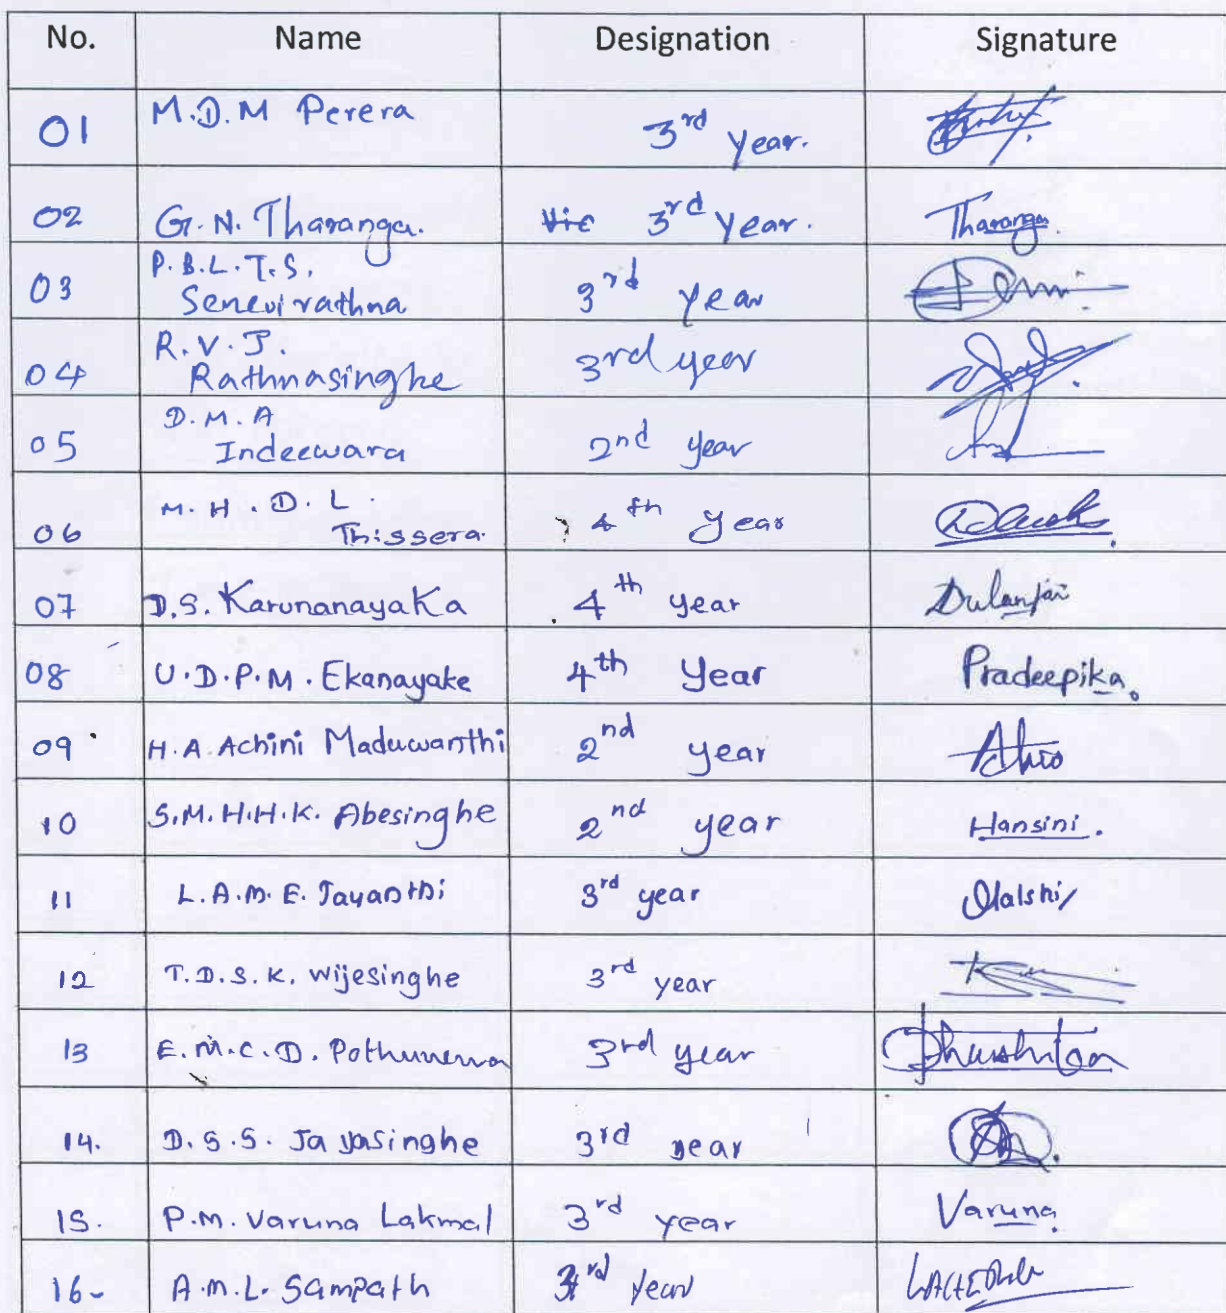 No. Name Designation Signature
01 M.D.M Perera 3rd year.
02 G.N. Tharanga. Vic 3rd year. Tharanga.
03 P.B.L.T.S.
Senevirathna 3rd year
04 R.V.J.
Rathnasinghe 3rd year
05 D.M.A
Indeewara 2nd year
06 M.H.D.L.
Thissera. 4th year
07 D.S. Karunanayaka 4th year Dulanjai
08 U.D.P.M. Ekanayake 4th Year Pradeepika.
09 H.A. Achini Maduwanthi 2nd year
10 S.M.H.H.K. Abesinghe 2nd year Hansini.
11 L.A.M.E. Jayanthi 3rd year
12 T.D.S.K. Wijesinghe 3rd year
13 E.M.C.D. Pothunewa 3rd year
14. D.S.S. Jayasinghe 3rd year
15. P.M. Varuna Lakmal 3rd year Varuna.
16- A.M.L. Sampath 3rd year